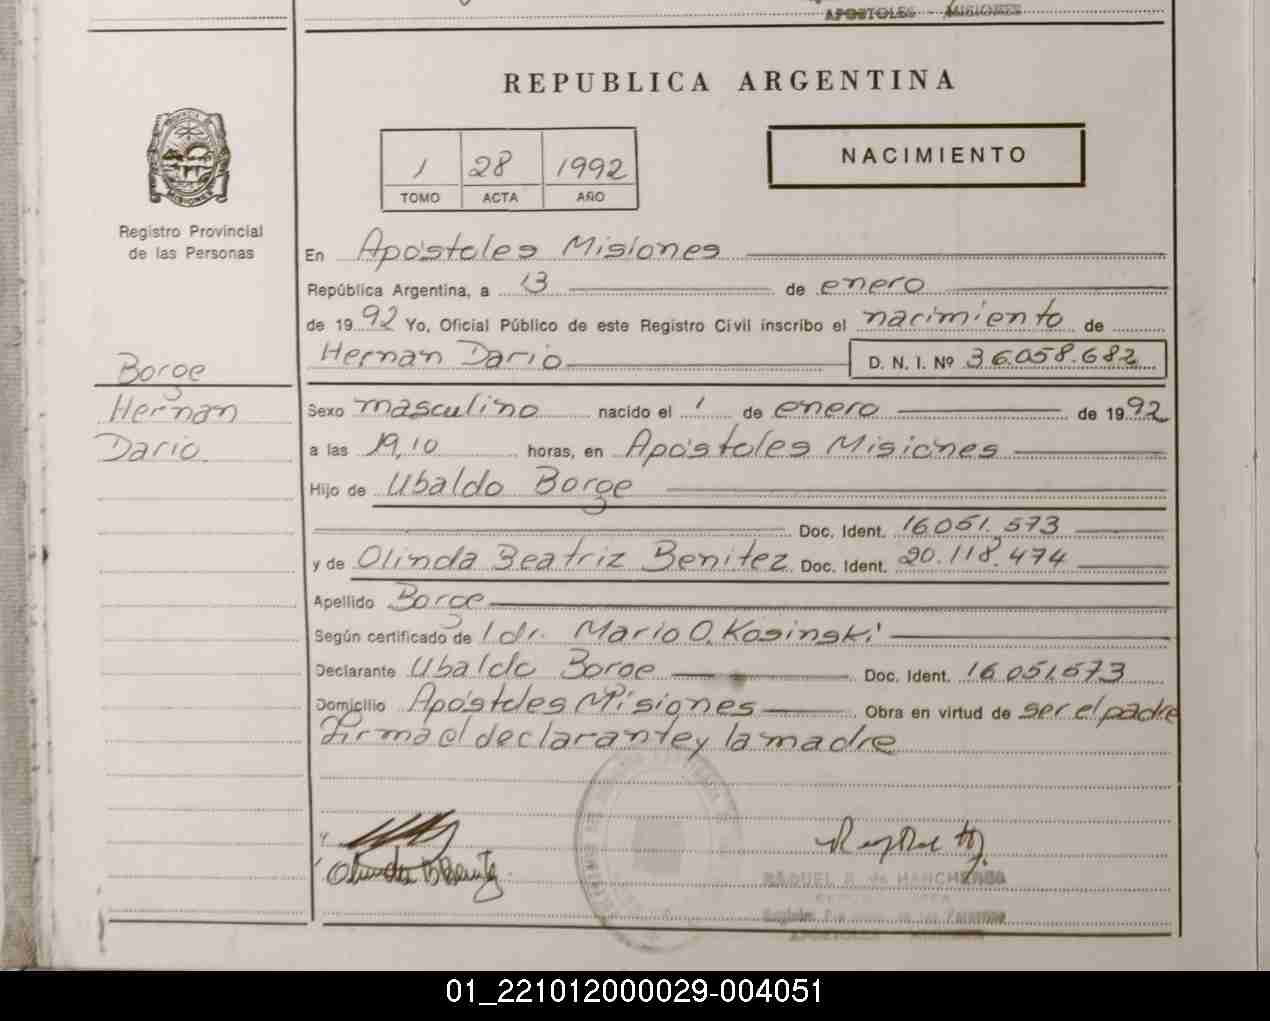 APOSTOLES - MISIONES
REPUBLICA ARGENTINA
1 28 1992
TOMO ACTA AÑO
NACIMIENTO
Registro Provincial
de las Personas
En Apóstoles Misiones
República Argentina, a 13 de enero
de 1992 Yo, Oficial Público de este Registro Civil inscribo el nacimiento de
Hernan Dario D. N. I. Nº 36.058.682
Borge
Hernan
Dario
Sexo masculino nacido el 1 de enero de 1992
a las 19,10 horas, en Apóstoles Misiones
Hijo de Ubaldo Borge
Doc. Ident. 16.051.573
y de Olinda Beatriz Benitez Doc. Ident. 20.118.474
Apellido Borge
Según certificado de l dr. Mario O. Kosinski
Declarante Ubaldo Borge Doc. Ident. 16.051.573
Domicilio Apóstoles Misiones Obra en virtud de ser el padre
Firma el declarante y la madre
Olinda B Benitez
RAQUEL R. de
APOSTOLES MISIONES
01_221012000029-004051